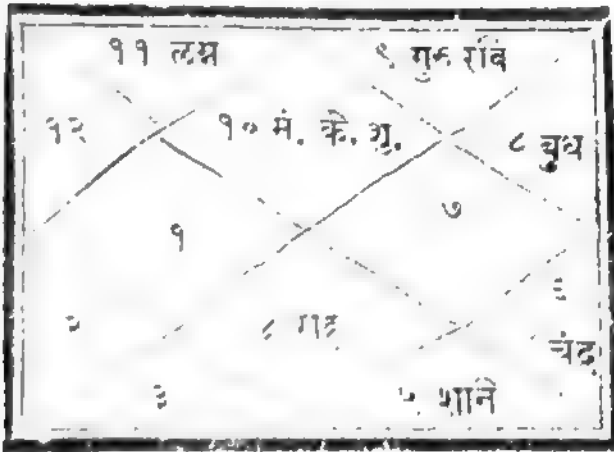 ११ लग्न ९ गुरु रवि
१२ १० मं. के. शु. ८ बुध
१ ७
२ राहु ६
चंद्र
३ ५ शनि